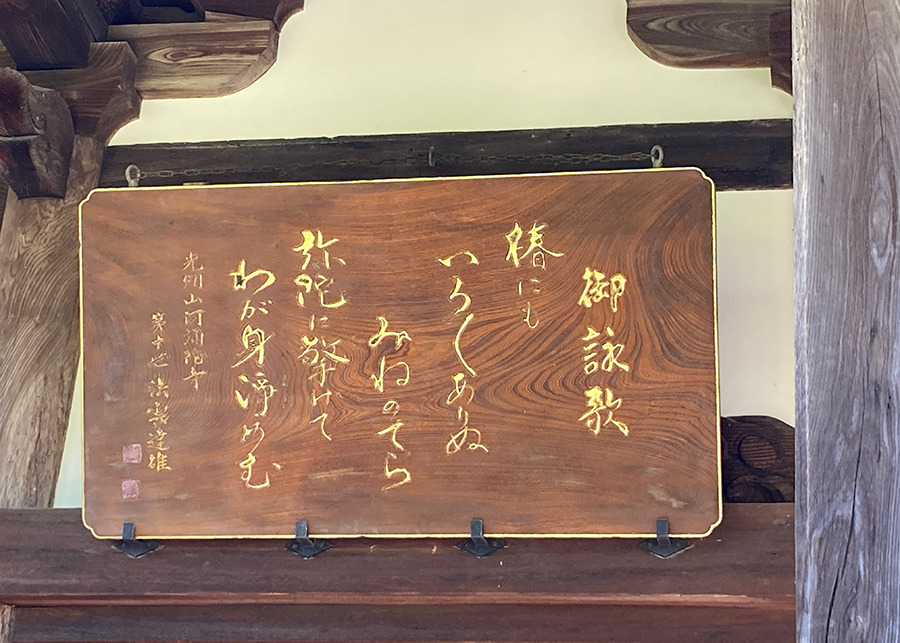 御詠歌
椿にも
いろ〱ありぬ
みねのてら
弥陀に擎けて
わが身浄めむ
光明山阿弥陀寺
第十世 達雄